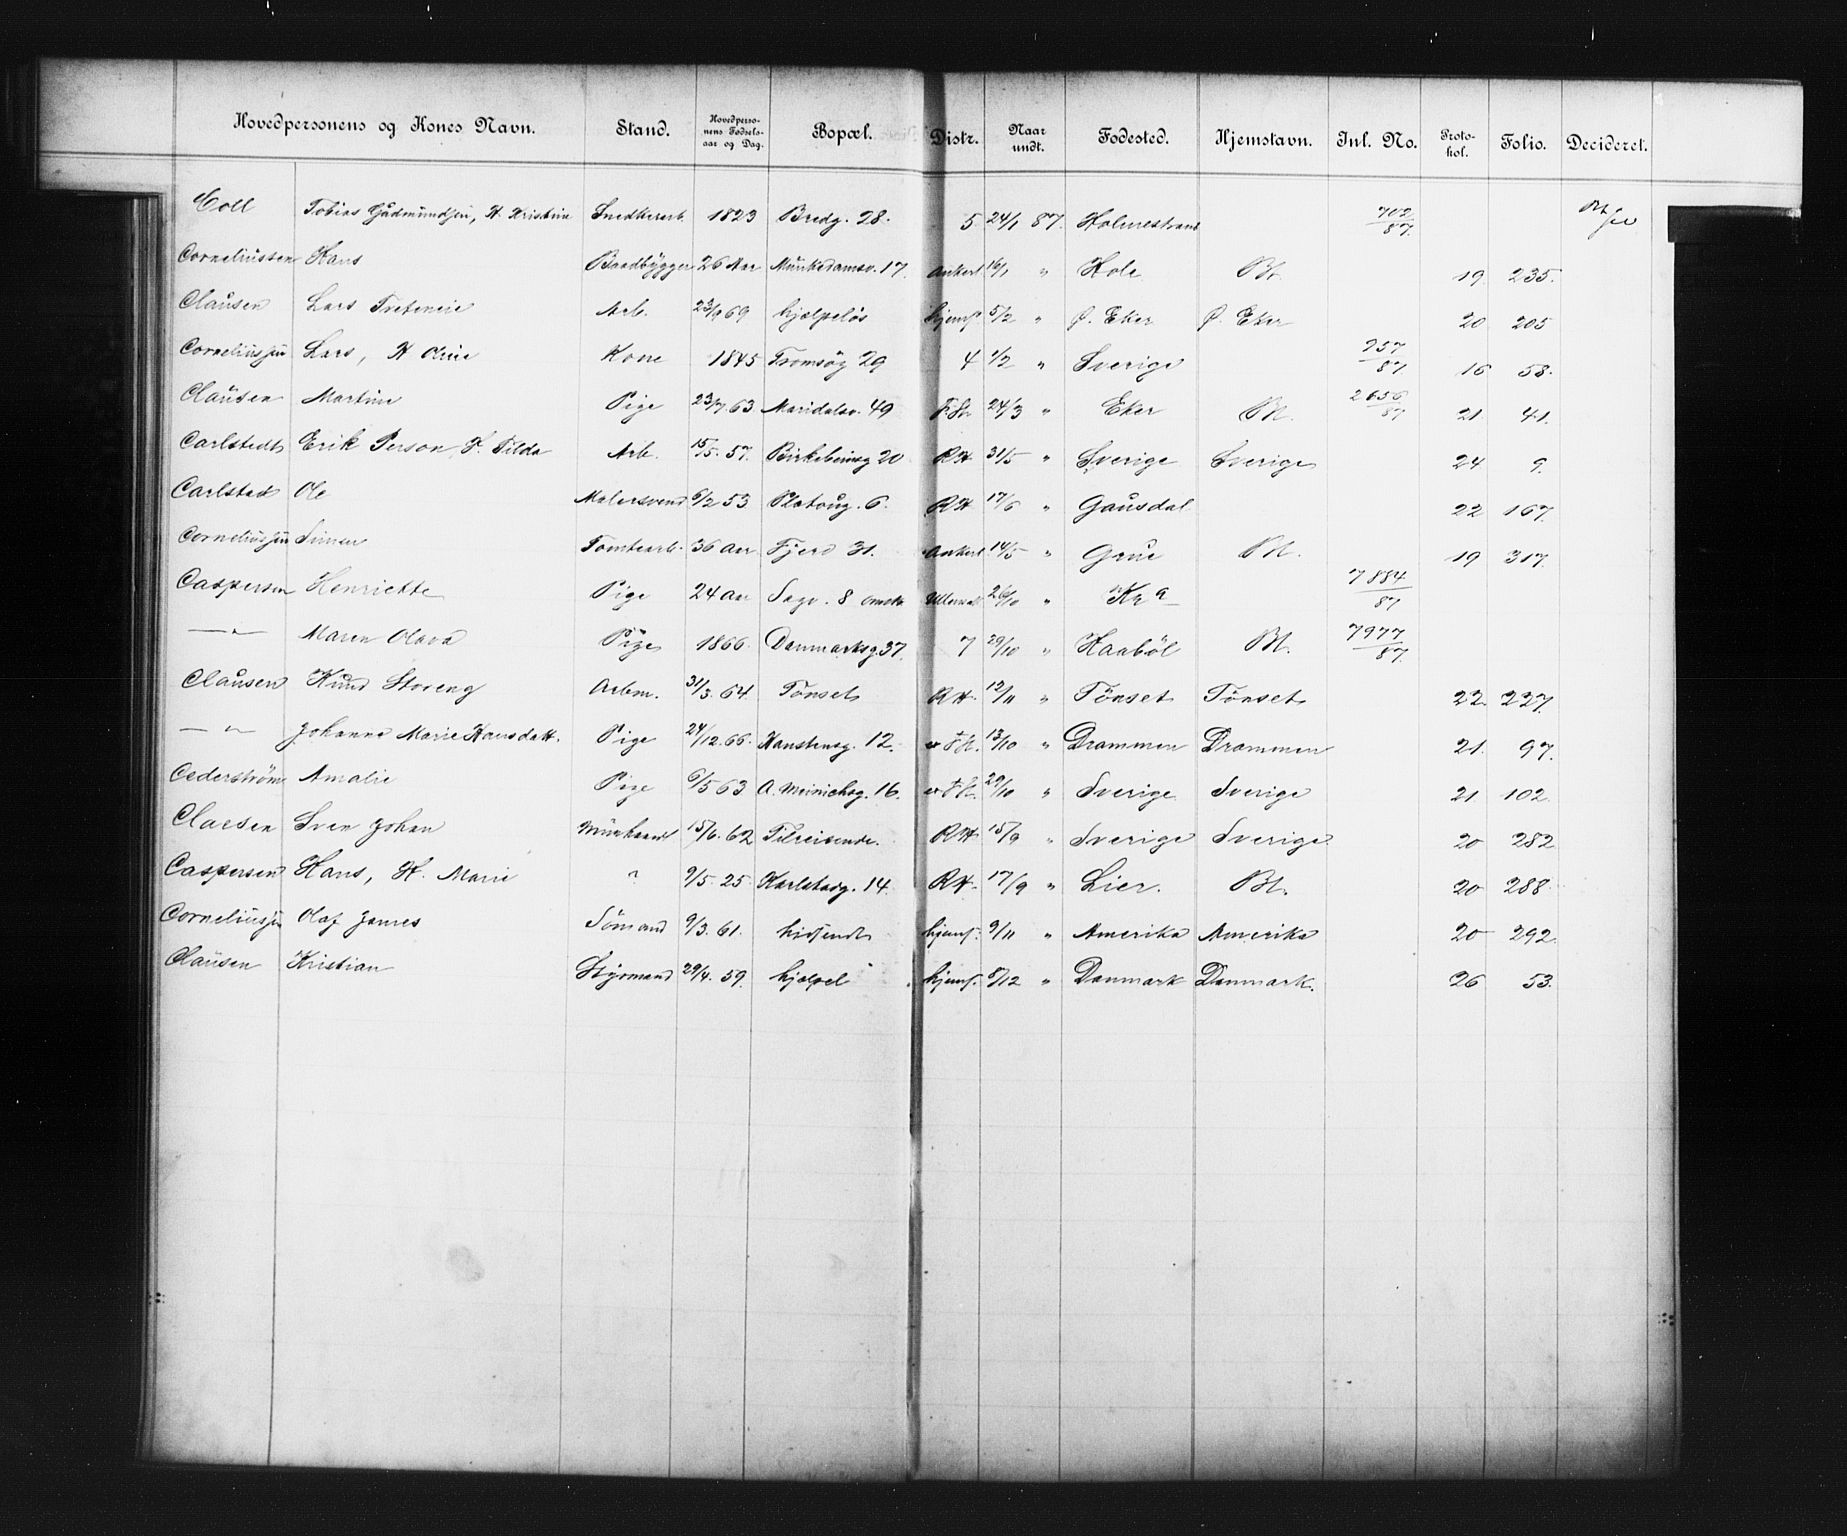 Hovedpersonens og Kones Navn. Stand. Hovedperso-nens Fødsels-aar og Dag. Bopæl. Distr. Naar undt. Fødested. Hjemstavn. Inl. No. Proto-kol. Folio. Decideret.
Coll Tobias Gudmundsen, K. Kristine Snedkerarb. 1823 Bredg. 28. 5 24/1 87. Holmestrand 702/87.
Corneliussen Hans Baadbygger 26 Aar Munkedamsv. 17. Ankerl. 16/1 " Hole 19. 235.
Clausen Lars Arb. 23/9 69 hjælpeløs hjemf. 5/2 " Ø. Eker Ø. Eker 20 205
Corneliussen Lars, K Oline Kone 1845 Tromsøg 29 4 1/2 " Sverige 957/87. 16 58.
Clausen Martine Pige 23/7. 63. Maridalsv. 49 24/3 " Eker 2656/87 21 41.
Carlstedt Erik Person, K. Tilda Arb. 15/5. 57. Birkebeinsg 20 RH 31/5 " Sverige Sverige 24 9.
Carlstad Ole Malersvend 6/2 53 Platoug. 6. RH 17/6 " Gausdal 22 167.
Corneliussen Simen Tomtearb. 36 Aar Fjerd 31. Ankerl. 14/5 " Grue 19 317.
Caspersen Henriette Pige 24 Aar Sagv. 8 Ullevaal 26/10 " Kra 7884/87
— " — Maren Olava Pige 1866. Danmarksg 37. 7 29/10 " Haabøl 7977/87.
Clausen Knud Storeng Arbm. 31/3. 64. Tønset RH. 12/11 " Tönset Tönset 22. 227.
— " — Johanne Marie Hansdatt. Pige 24/12. 66. Hanstensg. 12. 13/10 " Drammen Drammen 21. 97.
Cederstrøm Amalie Pige 6/5 63 A. Meinichsg. 16. 29/10 " Sverige Sverige 21 102.
Claesen Sven Johan Murhaandl 15/6. 62 Tilreisende. RH 15/9 " Sverige Sverige 20 282
Caspersen Hans, K. Marie " 9/5. 25. Karlstadg. 14. RH. 17/9 " Lier. 20 288.
Corneliussen Olaf James Sömand 9/3. 61. hidsendt hjemf. 9/11 " Amerika Amerika 20 292.
Clausen Kristian Styrmand 29/4. 59. hjælpel hjemf. 8/12 " Danmark Danmark. 26 53.